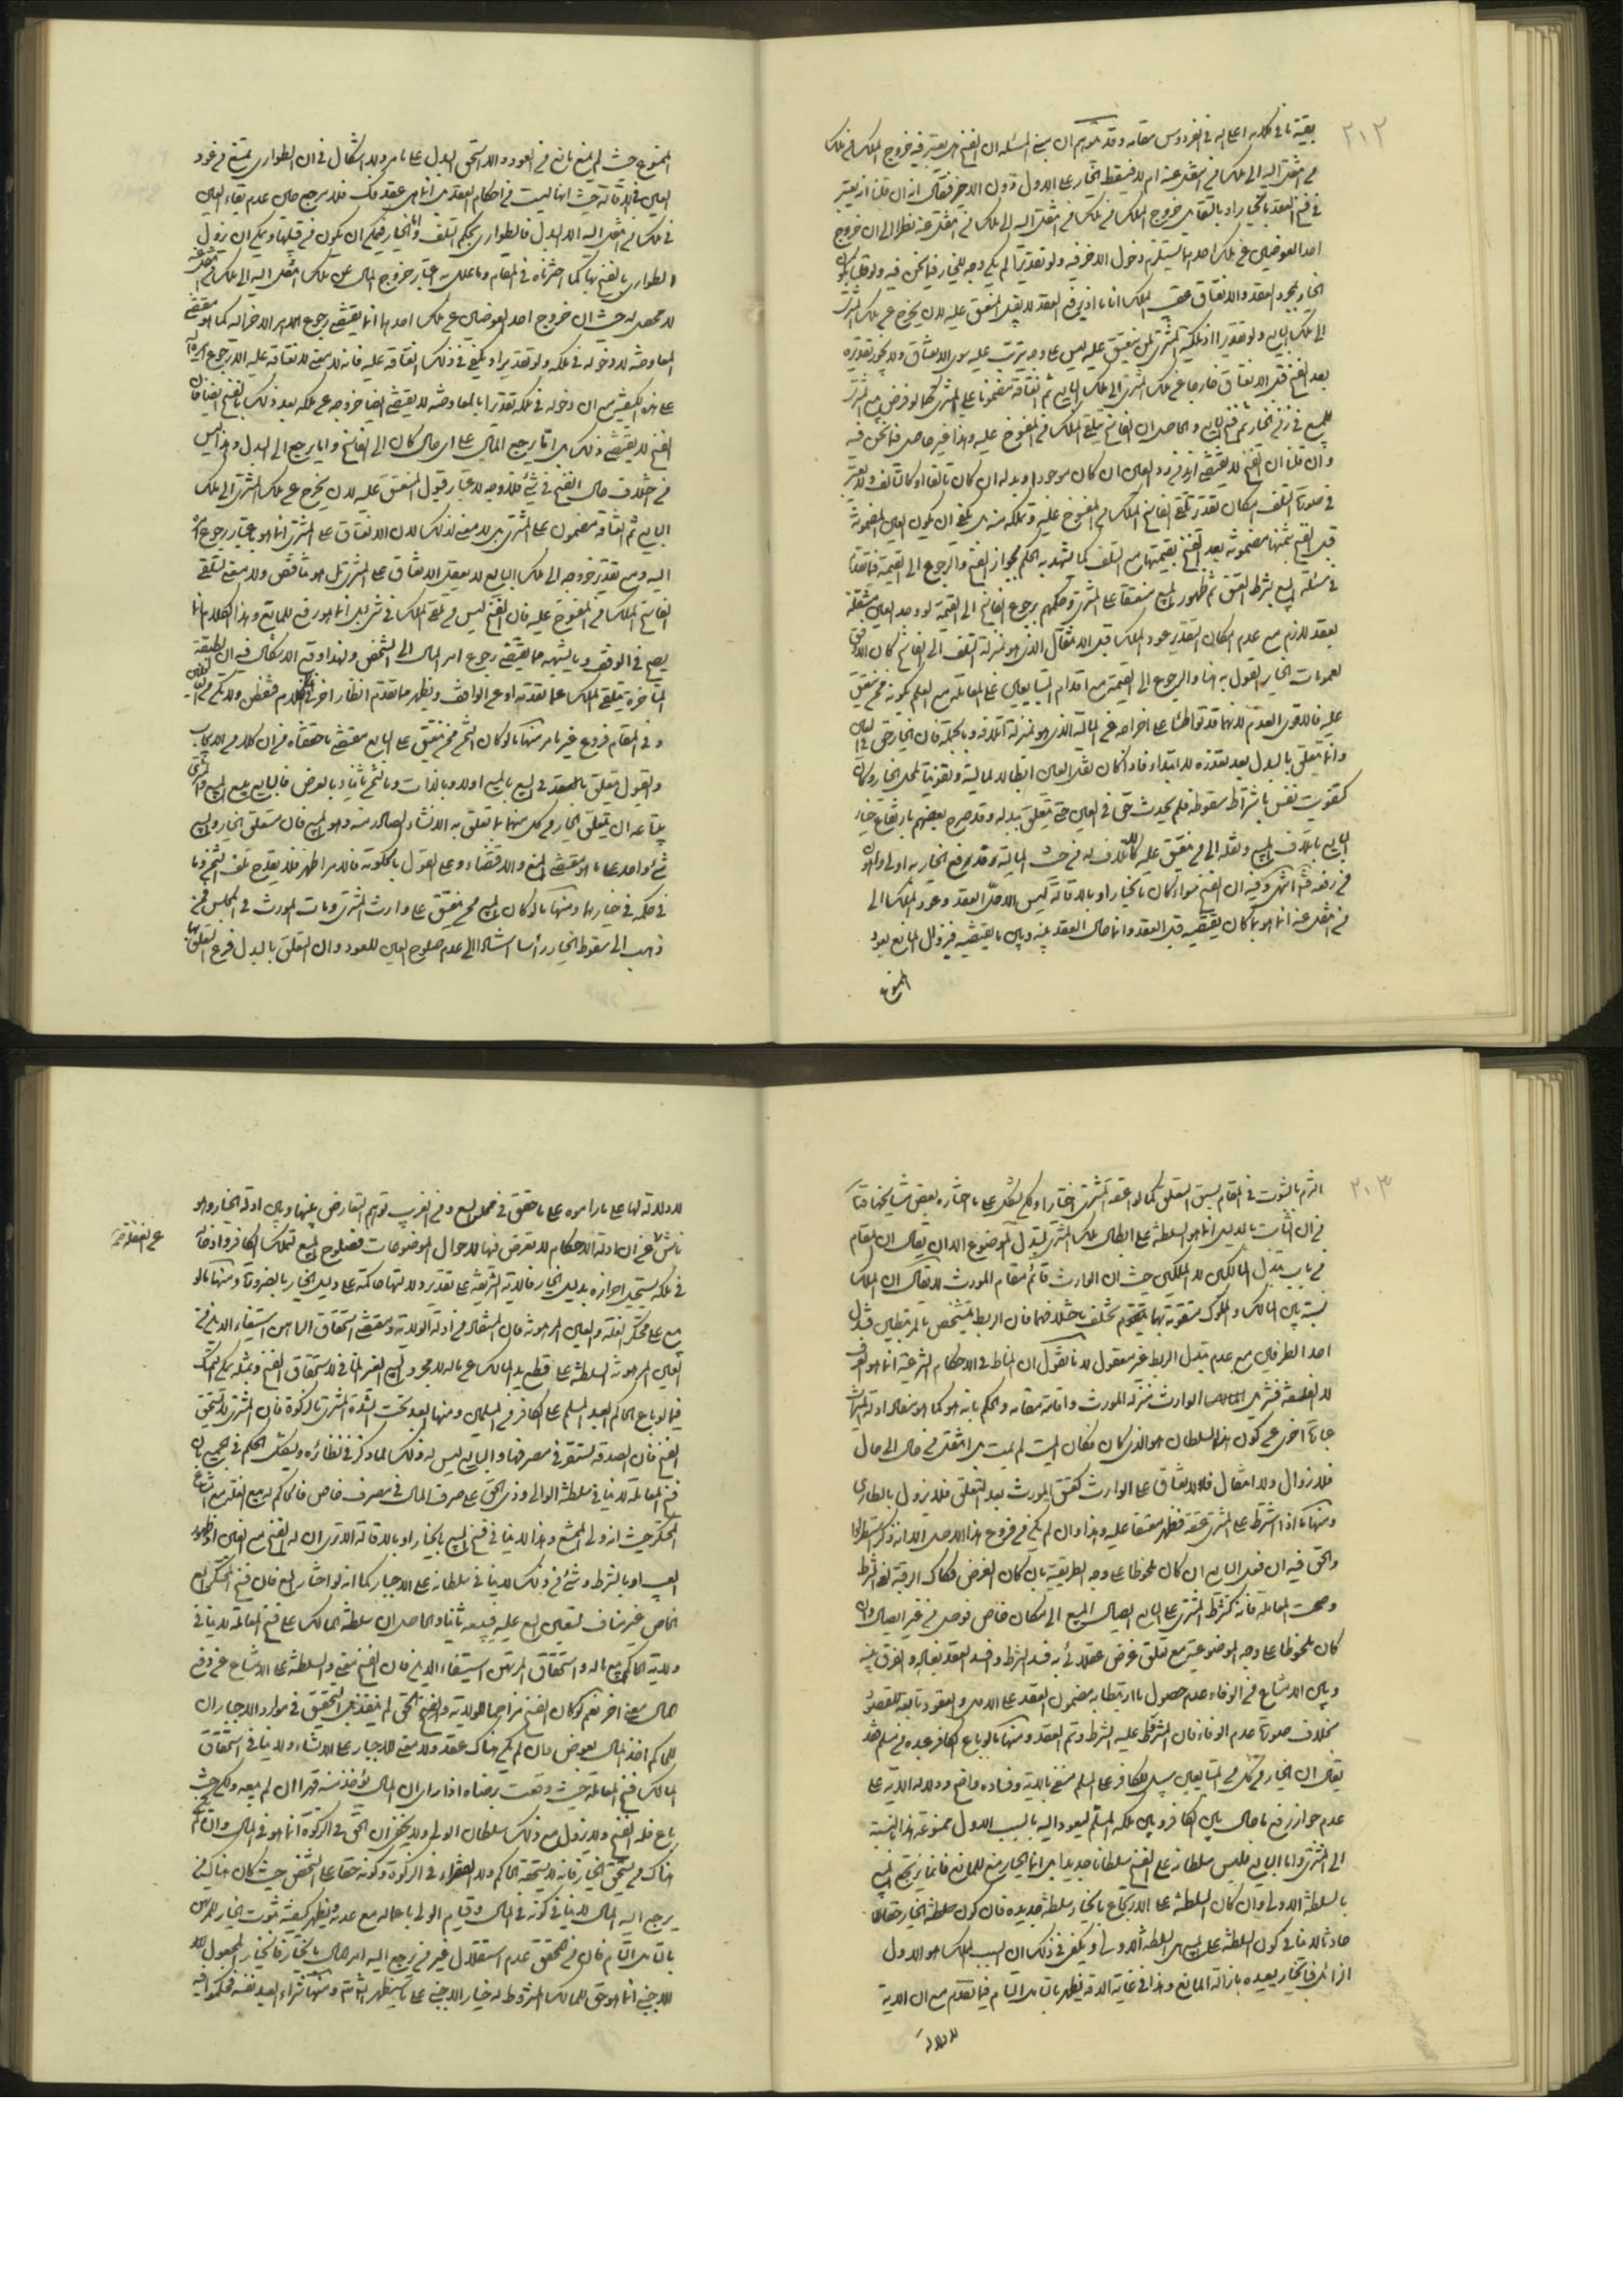 ٢١٢
بقية ما في كلامه اعلى الله في الفردوس مقامه وقد توهم ان مبنى المسئله ان الفسخ هل يعتبر فيه خروج الملك من ملك
من انتقل اليه الى ملك من انتقل عنه ام لا فيسقط الخيار على الاول دون الاخير فقال انه ان قلنا انه يعتبر
في فسخ العقد بالخيار او بالتقايل خروج الملك من ملك من انتقل اليه الى ملك من انتقل عنه نظرا الى ان خروج
احد العوضين عن ملك احدهما يستلزم دخول الاخر فيه ولو تقديرا لم يكن وجه للخيار فيما نحن فيه ولو قلنا بكون
الخيار بمجرد العقد والانعتاق عقيب الملك انا ما اذ برفع العقد لا يقبل المنعتق عليه لان يخرج من ملك المشترى
الى ملك البايع ولو تقديرا اذ ملكية المشترى لمن ينعتق عليه ليس على وجه يترتب عليه سوى الانعتاق ولا يجوز تقديره
بعد الفسخ قبل الانعتاق خارجا عن ملك المشترى الى ملك البايع ثم انعتاقه مضمونا على المشترى كما لو فرض بيع المشترى
للمبيع في زمن الخيار ثم فسخ البايع والحاصل ان الفاسخ يتلقى الملك من المفسوخ عليه وهذا غير حاصل فيما نحن فيه
وان قلنا ان الفسخ لا يقتضى ازيد من رد العين ان كان موجودا وبدله ان كان تالفا او كالتالف ولا يعتبر
في صورة التلف امكان تقدير تلقى الفاسخ الملك من المفسوخ عليه وتملكه منه بل يكفى ان يكون العين المضمونة
قبل الفسخ بثمنها مضمونه بعد الفسخ بقيمتها مع التلف كما يشهد به الحكم بجواز الفسخ والرجوع الى القيمة فيما تقدم
في مسئله البيع بشرط العتق ثم ظهور المبيع منعتقا على المشترى وحكمهم برجوع الفاسخ الى القيمة لو وجد العين منتقلة
بعقد لازم مع عدم امكان تقدير عود الملك قبل الانتقال الذى هو بمنزلة التلف الى الفاسخ كان الاوفق
بعمومات الخيار القول به هنا والرجوع الى القيمة مع اقدام المتبايعين على المعامله مع العلم بكونه ممن ينعتق
عليه فالاقوى العدم لانهما قد تواطئا على اخراجه عن المالية الذى هو بمنزلة اتلافه وبالجملة فان الخيار حق في العين
وانما يتعلق بالبدل بعد تعذره لا ابتداء فاذا كان نقل العين ابطالا لماليته وتفويتا لمحل الخيار كان
كتفويت نفس باشتراط سقوطه فلم يحدث حق في العين حتى يتعلق ببدله وقد صرح بعضهم بارتفاع خيار
البايع باتلاف المبيع ونقله الى من ينعتق عليه كالاتلاف له من حيث المالية فدفع الخيار به اولى واهون
من رفعه فتأمل انتهى وفيه ان الفسخ سواء كان بالخيار او بالاقالة ليس الا حل العقد وعود الملك الى
من انتقل عنه انما هو بما كان يقتضيه قبل العقد وانما حال العقد بينه وبين ما يقتضيه فبزوال المانع يعود
الممنوع
الممنوع حيث لم يمنع مانع من العود والا استحق البدل على ما مر ولا اشكال في ان الطوارى يمنع من عود
العين في الاقالة حيث انها ليست من احكام العقد بل انما هى عقد فك فلا يرجع حال عدم بقاء العين
في ملك من انتقل اليه الا البدل فالطوارى بحكم التلف واما الخيار فيمكن ان يكون من قبلها ويمكن ان يزول
الطوارى بالفسخ بها كما اخترناه في المقام وما علل به اعتبار خروج المال عن ملك من انتقل اليه الى ملك من انتقل عنه
لا محصل له حيث ان خروج احد العوضين عن ملك احدهما انما يقتضى رجوع الامر الاخر اليه كما هو مقتضى
المعاوضه لا دخوله في ملكه ولو تقديرا ويكفى في ذلك انعتاقه عليه فانه لا معنى لانعتاقه عليه الا رجوع
على هذه الكيفية مع ان دخوله في ملكه تقديرا بالمعاوضه لا يقتضى ايضا خروجه عن ملكه بعد ذلك بالفسخ ايضا فان
الفسخ لا يقتضى ذلك بل انما يرجع المال على اى حال كان الى الفاسخ وانما يرجع الى البدل وهذا ليس
من اختلاف حال الفسخ في شئ فلا وجه لاعتبار قبول المنعتق عليه لان يخرج عن ملك المشترى الى ملك
البايع ثم انعتاقه مضمونا على المشترى بل لا معنى لذلك لان الانعتاق على المشترى انما هو باعتبار رجوع
اليه ومع تقدير خروجه الى ملك البايع لا يعقل الانعتاق على المشترى بل هو متناقض ولا معنى لتلقى
الفاسخ الملك من المفسوخ عليه فان الفسخ ليس من تلقى الملك في شئ بل انما هو رفع للمانع وهذا الكلام انما
يصح في الوقف وما يشبهه مما يقتضى رجوع امر المال الى الشخص ولهذا وقع الاشكال فيه ان الطبقة
المتاخرة يتلقى الملك عمن تقدمه او عن الواقف ويظهر مما تقدم انظار اخر في الكلام فتفطن ولا تكن من الغافلين
وفى المقام فروع غير ما مر منها ما لو كان الثمن ممن ينعتق على البايع مقتضى ما حققناه من ان كلا من الايجاب
والقبول يتعلق بالعقد في البيع بالمبيع اولا وبالذات وبالثمن ثانيا وبالعرض فالبايع يبيع المبيع والمشترى
يبتاعه ان يتعلق الخيار من كل منهما بما تعلق به الانشاء الصادر منه وهو المبيع فان متعلق الخيار والبيع
شئ واحد على ما هو مقتضى المنع والاقتضاء وعلى القول بالحكومة فالامر اظهر فلا يقدح تلف الثمن وما
في حكمه في خيارها ومنها ما لو كان المبيع ممن ينعتق على وارث المشترى ومات المورث في المجلس فمن
ذهب الى سقوط الخيار رأسا استنادا الى عدم صلوح العين للعود وان التعلق بالبدل فرع التعلق بها
٢١٣
التزم بالثبوت في المقام لسبق التعلق كما لو اعتقه المشترى اختيارا ولكن يشكل على ما اختاره بعض مشايخنا قائلا
من ان الثابت بالدليل انما هو السلطنة على ابطال ملك المشترى لتبدل الموضوع الا ان يقال ان المقام
من باب تبدل المالكين لا الملكين حيث ان الوارث قائم مقام المورث لا يقال ان الملك
نسبة بين المالك والمملوك متقومة بهما يختلف باختلافهما فان الربط يتشخص بالمرتبطين فتبدل
احد الطرفين مع عدم تبدل الربط غير معقول لانا نقول ان المناط في الاحكام الشرعية انما هو العرف
لا الفلسفة فتنزيل الوارث منزلة المورث واقامته مقامه والحكم بانه هو كما هو مفاد ادلة الميراث
عبارة اخرى عن كون هذا السلطان هو الذى كان فكان الميت لم يمت بل انتقل من حال الى حال
فلا زوال ولا انتقال فالانعتاق على الوارث كعتق المورث بعد التعلق فلا يزول بالطارى
ومنها ما اذا اشترط على المشترى عتقه فظهر منعتقا عليه وهذا وان لم يكن من فروع هذا الاصل الا انه ذكر استطرادا
والحق فيه ان فعل البايع ان كان ملحوظا على وجه الطريقية بان كان الغرض فكاك الرقبة لغى الشرط
وصحت المعامله فانه كشرط المشترى على البايع ايصال المبيع الى مكان خاص فوصل من غير ايصال وان
كان ملحوظا على وجه الموضوعية مع تعلق غرض عقلائى به فسد الشرط وفسد العقد بفساده والفرق بينه
وبين الامتناع من الوفاء عدم حصول ما ارتبط به مضمون العقد على الاول والعقود تابعة للقصود
بخلاف صورة عدم الوفاء فان المشترط عليه الشرط وتم العقد ومنها ما لو باع الكافر عبده من مسلم فقد
يقال ان الخيار من كل من المتبايعين سبيل للكافر على المسلم منفى بالاية وفساده واضح ودلالة الاية على
عدم جواز رفع ما حال بين الكافر وبين ملكه المسلم ليعود اليه بالسبب الاول ممنوعة هذا بالنسبة
الى المشترى واما البايع فليس سلطانه على الفسخ سلطانا جديدا بل انما الخيار منع للمانع فانما يرتجع المبيع
بالسلطنة الاولى وان كان السلطنة على الارتجاع بالخيار سلطنة جديدة فان كون سلطنة الخيار حقا
حادثا لا ينافى كون السلطنة على المبيع هى السلطنة الاولى ويكفى في ذلك ان السبب للملك هو الاول
اذا زال فبالخيار يعيده بازالة المانع وهذا في غاية الدقة يظهر بالتامل التام فيما تقدم مع ان الاية
لا دلالة
لا دلالة لها على ما راموه على ما حقق في محله والعجب من توهم التعارض بينها وبين ادلة الخيار وهو
ناش من ان ادلة الاحكام لا تعرض فيها لاحوال الموضوعات فصلوح المبيع لتملك الكافر وادخاله
عن الغفلة عن
في ملكه يستحيل احرازه بدليل الخيار فالاية الشريفة على تقدير دلالتها حاكمة على دليل الخيار بالضرورة ومنها ما لو
بيع على محتكر الغلة والعين المرهونة فان المستفاد من ادلة الولاية ومقتضى استحقاق الراهن استيفاء الدين من
العين المرهونة السلطنة على قطع يد المالك عن ماله لا بمجرد البيع الغير المنافى لاستحقاق الفسخ ومثله كل تملك
فيما لو باع الحاكم العبد المسلم على الكافر من المسلمين ومنها العبد تحت الشدة المشترى بالزكوة فان المشترى لا يستحق
الفسخ فان الصدقه تستقر في مصرفها والبايع ليس له ذلك لما ذكر في نظائره ويشكل الحكم في الجميع بان
فسخ المعامله لا ينافى سلطنة الوالى وذى الحق على صرف المال في مصرف خاص فالحاكم له بيع الغلة مع امتناع
المحتكر حيث انه ولى الممتنع وهذا لا ينافى فسخ البيع بالخيار او بالاقالة الا ترى ان له الفسخ مع الغبن او ظهور
العيب او بالشرط وشئ من ذلك لا ينافى سلطانه على الاجبار كما انه لو اختار البيع فان فسخ المحتكر البيع
الخاص غير مناف لتعين البيع عليه فيبيعه ثانيا والحاصل ان سلطنة المالك على فسخ المعامله لا ينافى
ولاية الحاكم ببيع ماله واستحقاق المرتهن استيفاء الدين فان الفسخ معنى والسلطنة على الامتناع عن دفع
المال معنى اخر نعم لو كان الفسخ مزاحما للولاية وذى الحق لم ينفذ بل التحقيق في موارد الاجبار ان
للحاكم اخذ المال بعوض فان لم يكن هناك عقد ولا معنى للاجبار على الانشاء ولا ينافى استحقاق
المالك فسخ المعاملة حيث وقعت برضاه اذا راى ان المال يؤخذ منه قهرا ان لم يبعه ولكن حيث
باع فله الفسخ ولا يزول مع ذلك سلطان الولى ولا يخفى ان الحق في الزكوة انما هو في المال وان لم يكن
هناك من يستحق الخيار فانه لا يستحقه الحاكم ولا الفقراء في الزكوة وكونه حقا على الشخص حيث كان هناك من
يرجع اليه المال لا ينافى كونه في المال وقيام الولى باعماله مع عدمه ويظهر كيفية ثبوت الخيار
بالتامل التام فان من المحقق عدم استقلال غير من يرجع اليه امر المال بالخيار فالخيار المجعول
للاجنبى انما هو حق للمالك المشروط له خيار الاجنبى على ما سيظهر ان شاء الله ومنها شراء العبد نفسه فحكموا فيه